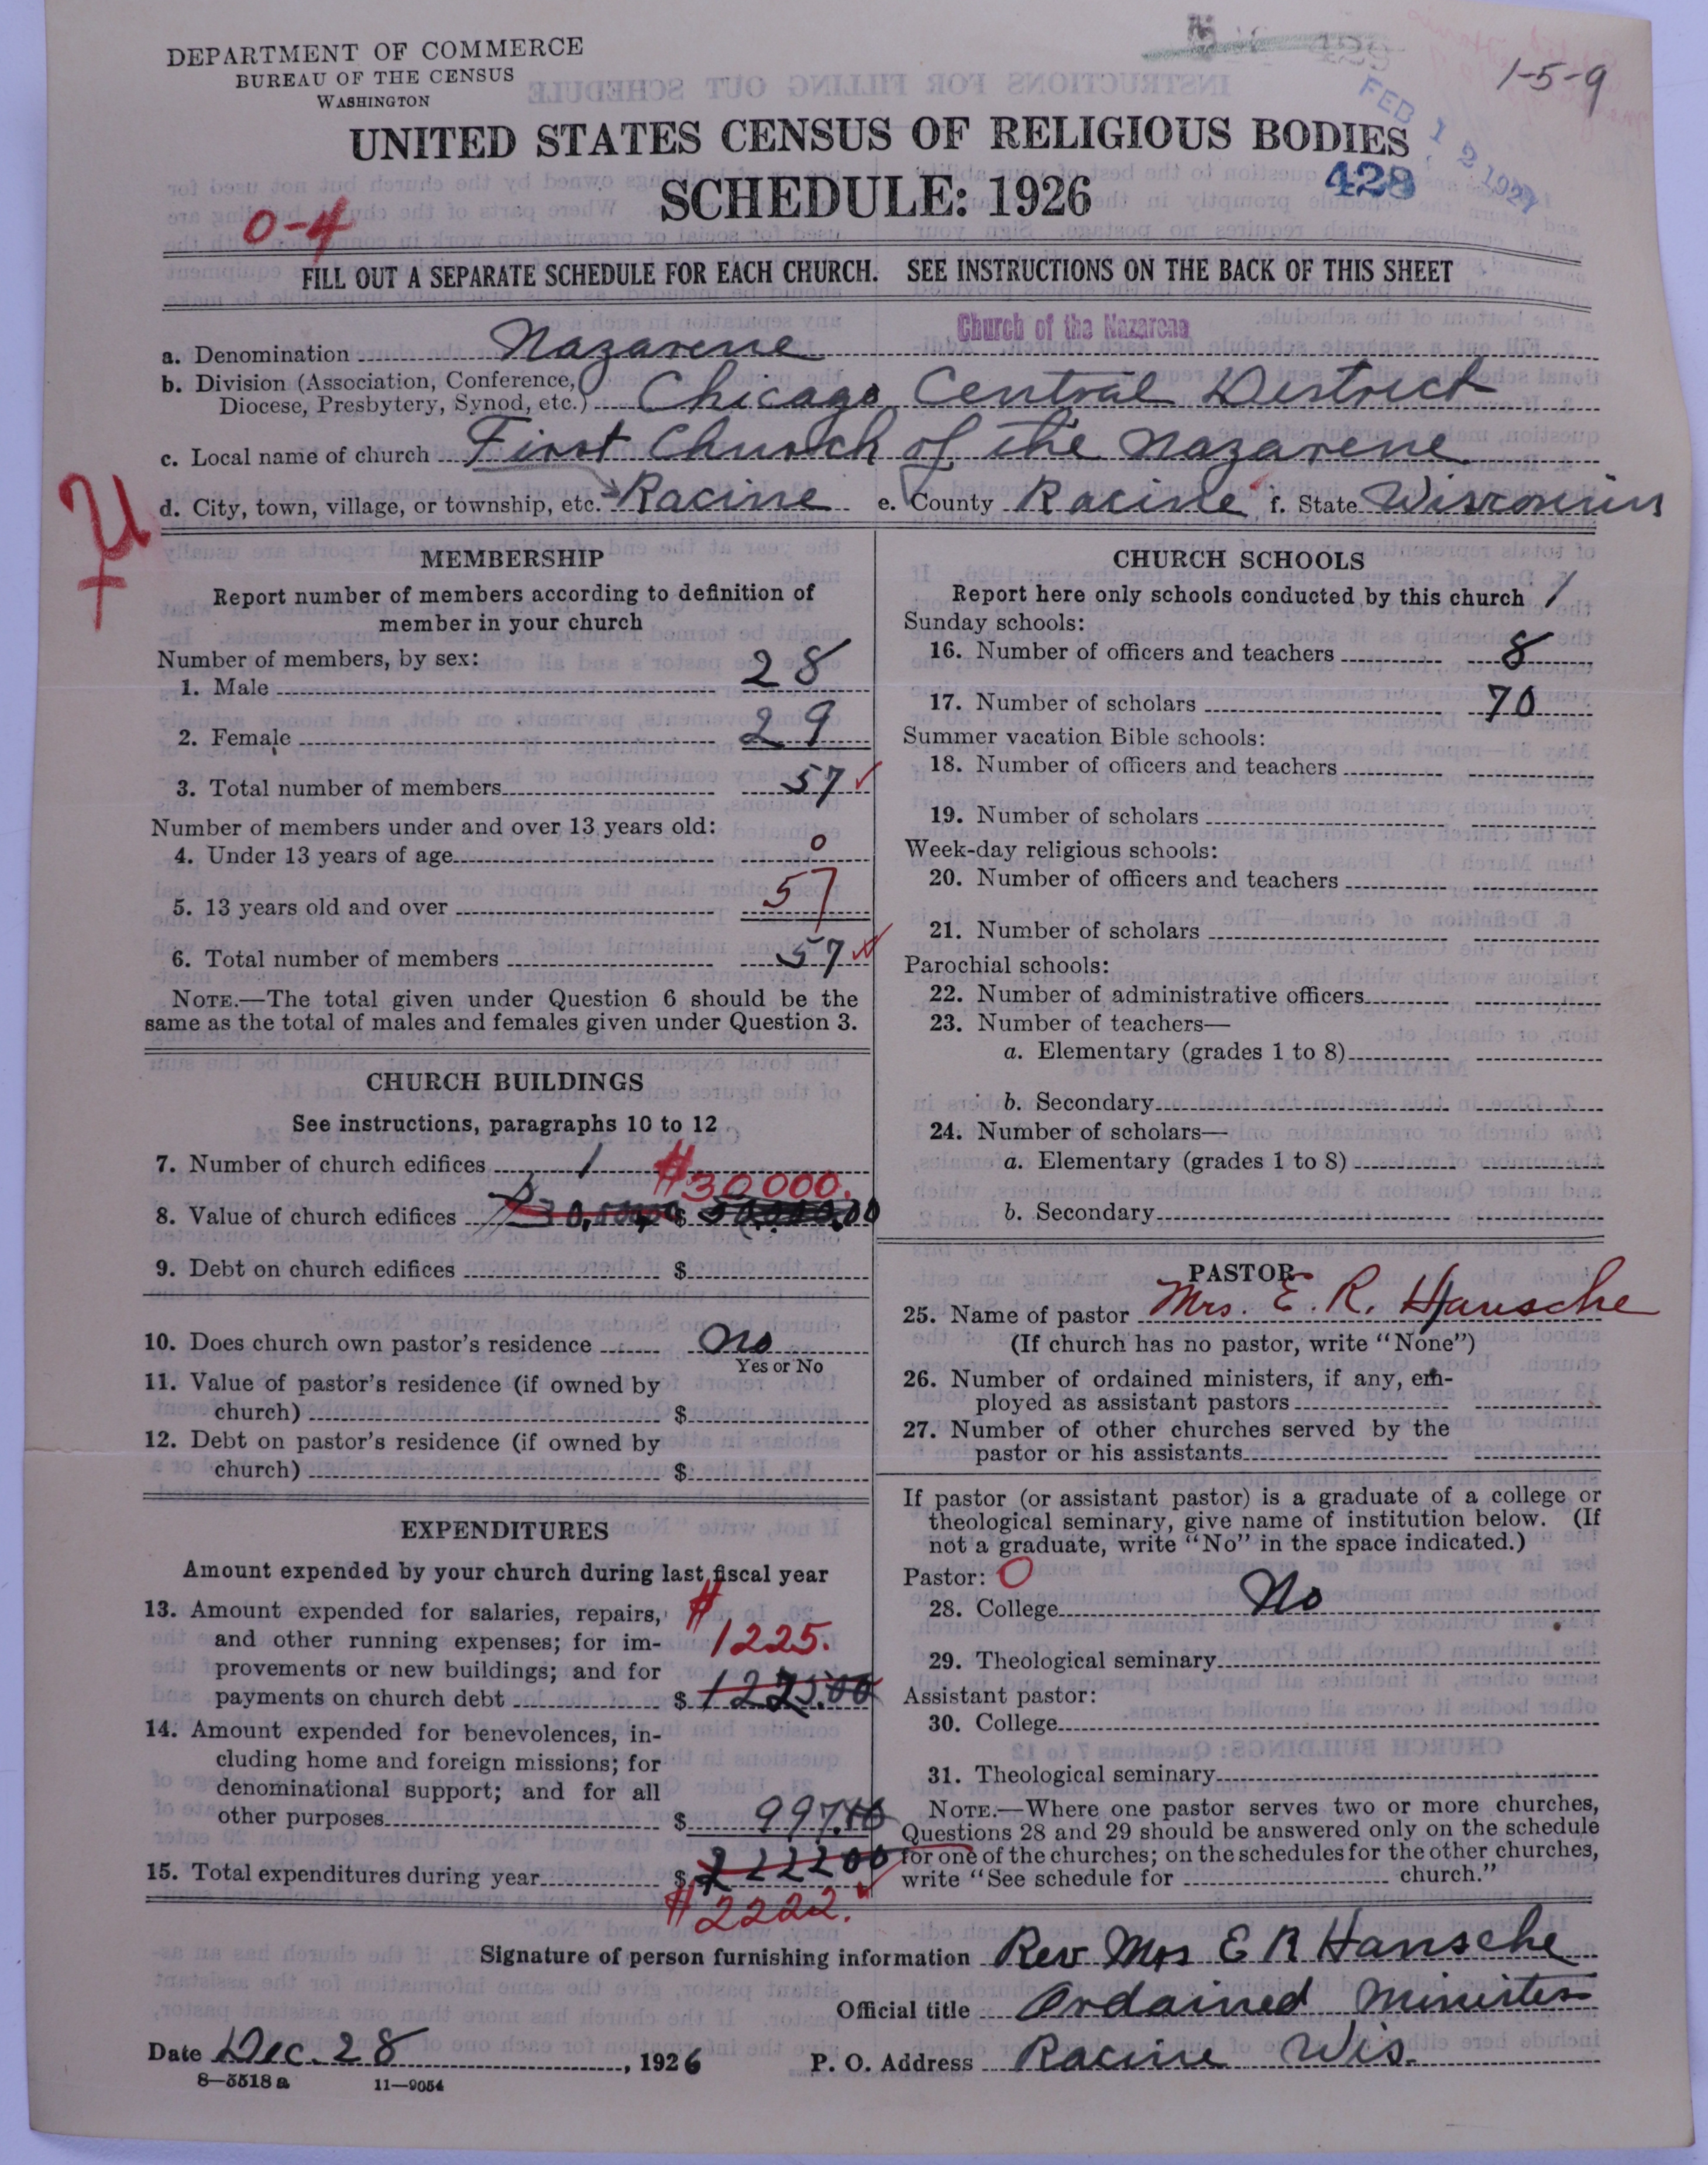 DEPARTMENT OF COMMERCE
BUREAU OF THE CENSUS
WASHINGTON
1-5-9
FEB 12 1927
UNITED STATES CENSUS OF RELIGIOUS BODIES
SCHEDULE: 1926
428
0-4
FILL OUT A SEPARATE SCHEDULE FOR EACH CHURCH. SEE INSTRUCTIONS ON THE BACK OF THIS SHEET
Church of the Nazarene
a. Denomination Nazarene
b. Division (Association, Conference, Diocese, Presbytery, Synod, etc.) Chicago Central District
c. Local name of church First Church of the Nazarene
d. City, town, village, or township, etc. Racine e. County Racine f. State Wisconsin
MEMBERSHIP
Report number of members according to definition of
member in your church
Number of members, by sex:
1. Male 28
2. Female 29
3. Total number of members 57
Number of members under and over 13 years old:
4. Under 13 years of age 0
5. 13 years old and over 57
6. Total number of members 57
NOTE.—The total given under Question 6 should be the
same as the total of males and females given under Question 3.
CHURCH BUILDINGS
See instructions, paragraphs 10 to 12
7. Number of church edifices 1
$30000.
8. Value of church edifices $
9. Debt on church edifices $
10. Does church own pastor's residence No
Yes or No
11. Value of pastor's residence (if owned by
church) $
12. Debt on pastor's residence (if owned by
church) $
EXPENDITURES
Amount expended by your church during last fiscal year
13. Amount expended for salaries, repairs,
and other running expenses; for im-
provements or new buildings; and for
payments on church debt $ 1225.00
$1225.
14. Amount expended for benevolences, in-
cluding home and foreign missions; for
denominational support; and for all
other purposes $ 997.10
15. Total expenditures during year $ 2222 00
$2222.
CHURCH SCHOOLS
Report here only schools conducted by this church 1
Sunday schools:
16. Number of officers and teachers 8
17. Number of scholars 70
Summer vacation Bible schools:
18. Number of officers and teachers
19. Number of scholars
Week-day religious schools:
20. Number of officers and teachers
21. Number of scholars
Parochial schools:
22. Number of administrative officers
23. Number of teachers—
a. Elementary (grades 1 to 8)
b. Secondary
24. Number of scholars—
a. Elementary (grades 1 to 8)
b. Secondary
PASTOR
25. Name of pastor Mrs. E. R. Hansche
(If church has no pastor, write "None")
26. Number of ordained ministers, if any, em-
ployed as assistant pastors
27. Number of other churches served by the
pastor or his assistants
If pastor (or assistant pastor) is a graduate of a college or
theological seminary, give name of institution below. (If
not a graduate, write "No" in the space indicated.)
Pastor: O
28. College No
29. Theological seminary
Assistant pastor:
30. College
31. Theological seminary
NOTE.—Where one pastor serves two or more churches,
Questions 28 and 29 should be answered only on the schedule
for one of the churches; on the schedules for the other churches,
write "See schedule for church."
Signature of person furnishing information Rev Mrs E R Hansche
Official title Ordained Minister
Date Dec. 28, 1926 P. O. Address Racine Wis.
8—5518a 11—9054